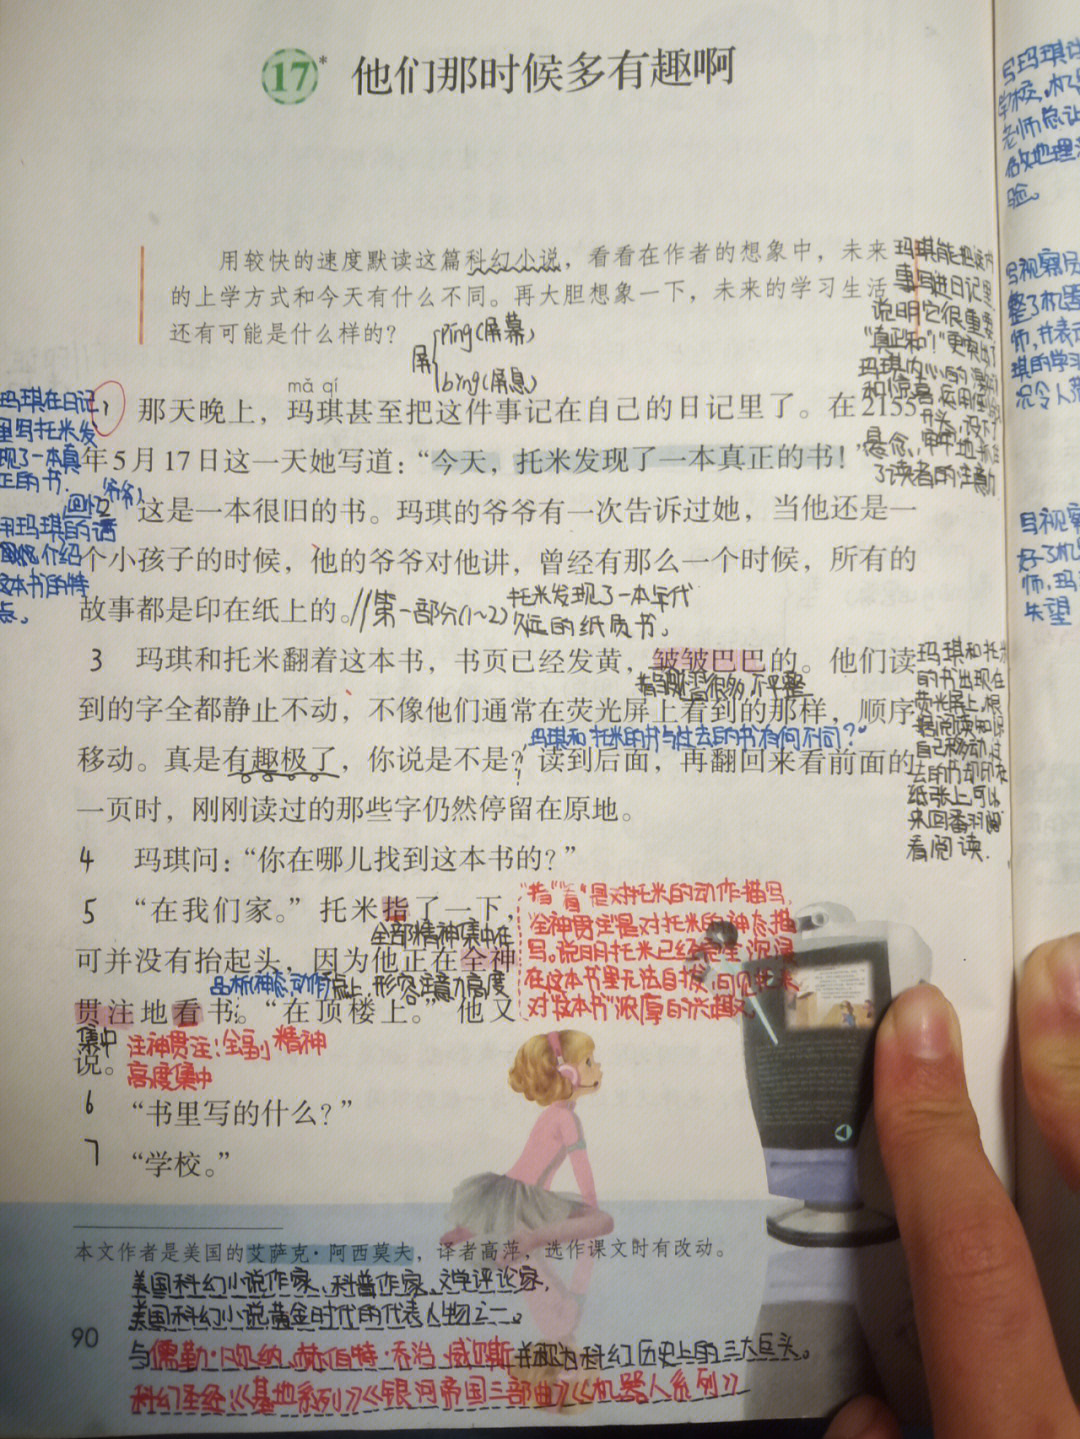 17* 他们那时候多有趣啊
用较快的速度默读这篇科幻小说，看看在作者的想象中，未来
的上学方式和今天有什么不同。再大胆想象一下，未来的学习生活
还有可能是什么样的？
屏
píng(屏幕)
bǐng(屏息)
mǎ qí
1 那天晚上，玛琪甚至把这件事记在自己的日记里了。在2155
年5月17日这一天她写道：“今天，托米发现了一本真正的书！”
2 这是一本很旧的书。玛琪的爷爷有一次告诉过她，当他还是一
个小孩子的时候，他的爷爷对他讲，曾经有那么一个时候，所有的
故事都是印在纸上的。
//第一部分(1~2)
托米发现了一本年代
久远的纸质书。
3 玛琪和托米翻着这本书，书页已经发黄，皱皱巴巴的。他们读
到的字全都静止不动，不像他们通常在荧光屏上看到的那样，顺序
玛琪和托米的书与过去的书有何不同？
移动。真是有趣极了，你说是不是？读到后面，再翻回来看前面的
一页时，刚刚读过的那些字仍然停留在原地。
4 玛琪问：“你在哪儿找到这本书的？”
5 “在我们家。”托米指了一下，
全部精神集中在
可并没有抬起头，因为他正在全神
一点上，形容注意力高度
贯注地看书。“在顶楼上。”他又
集中
说。
注神贯注：全副精神
高度集中
6 “书里写的什么？”
7 “学校。”
玛琪在日记
里写托米发
现了一本真
正的书。
回忆(爷爷)
用玛琪的
介绍
这本书的特
点。
说明它很重要
了读者的注意力
玛琪和托米
的书出现在
荧光屏上，根
自己移动，过
去的书却印在
纸张上可以
来回翻阅
看阅读.
“指”“看”是对托米的动作描写,
“全神贯注”是对托米的神态描
写。说明托米已经完全沉浸
在这本书里无法自拔,可见托米
对“这本书”浓厚的兴趣。
本文作者是美国的艾萨克·阿西莫夫，译者高萍，选作课文时有改动。
美国科幻小说作家、科普作家、文学评论家，
美国科幻小说黄金时代的代表人物之一。
与儒勒·凡尔纳、赫伯特·乔治·威尔斯并称为科幻历史上的三大巨头。
科幻圣经《基地系列》《银河帝国三部曲》《机器人系列》
90